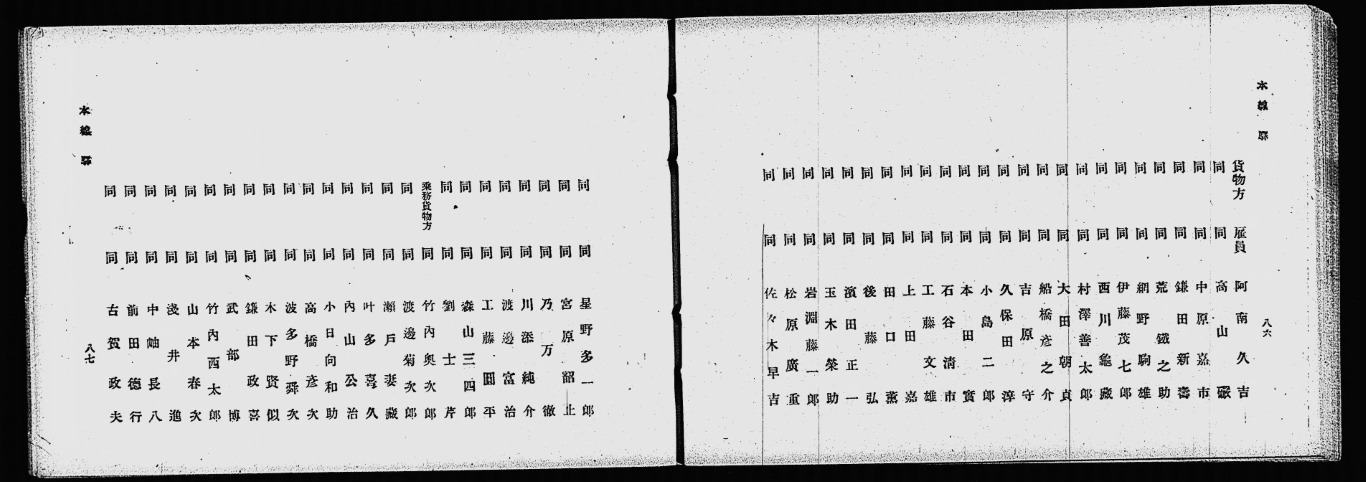 本線 驛
貨物方 雇員 阿南久吉
同 同 高山巖
同 同 中原嘉市
同 同 鎌田新壽
同 同 荒鐵之助
同 同 網野駒雄
同 同 伊藤茂七郎
同 同 西川龜藏
同 同 村澤善太郎
同 同 大田朝貞
同 同 船橋彥之介
同 同 吉原守
同 同 久保田淳
同 同 小島二郎
同 同 本田實
同 同 石谷清市
同 同 工藤文雄
同 同 上田嘉
同 同 田口薰
同 同 後藤弘
同 同 濱田正一
同 同 玉木榮助
同 同 岩淵藤一郎
同 同 松原廣重
同 同 佐々木早吉
八六
本線 驛
同 同 星野多一郎
同 同 宮原韶止
同 同 乃万徹
同 同 川添純介
同 同 渡邊富治
同 同 工藤圓平
同 同 森山三四郎
同 同 劉士芹
乘務貨物方 同 竹內奧次郎
同 同 渡邊菊次郎
同 同 瀨戶妻藏
同 同 叶多喜久
同 同 內山公治
同 同 小日向和助
同 同 高橋彥次
同 同 波多野舜次
同 同 木下賢似
同 同 鎌田政喜
同 同 武部博
同 同 竹內西太郎
同 同 山本春次
同 同 淺井進
同 同 中岫長八
同 同 前田德行
同 同 古賀政夫
八七